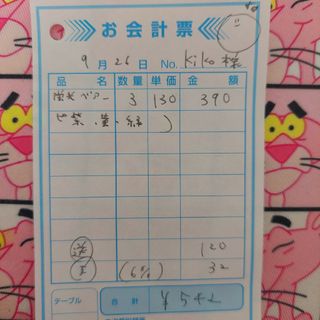 お会計票
9月26日 No. Kiko 様
品名 数量 単価 金額
蛍光ベアー 3 130 390
(紫・黄・緑)
送 120
手 (6%) 32
テーブル 合計 ¥542